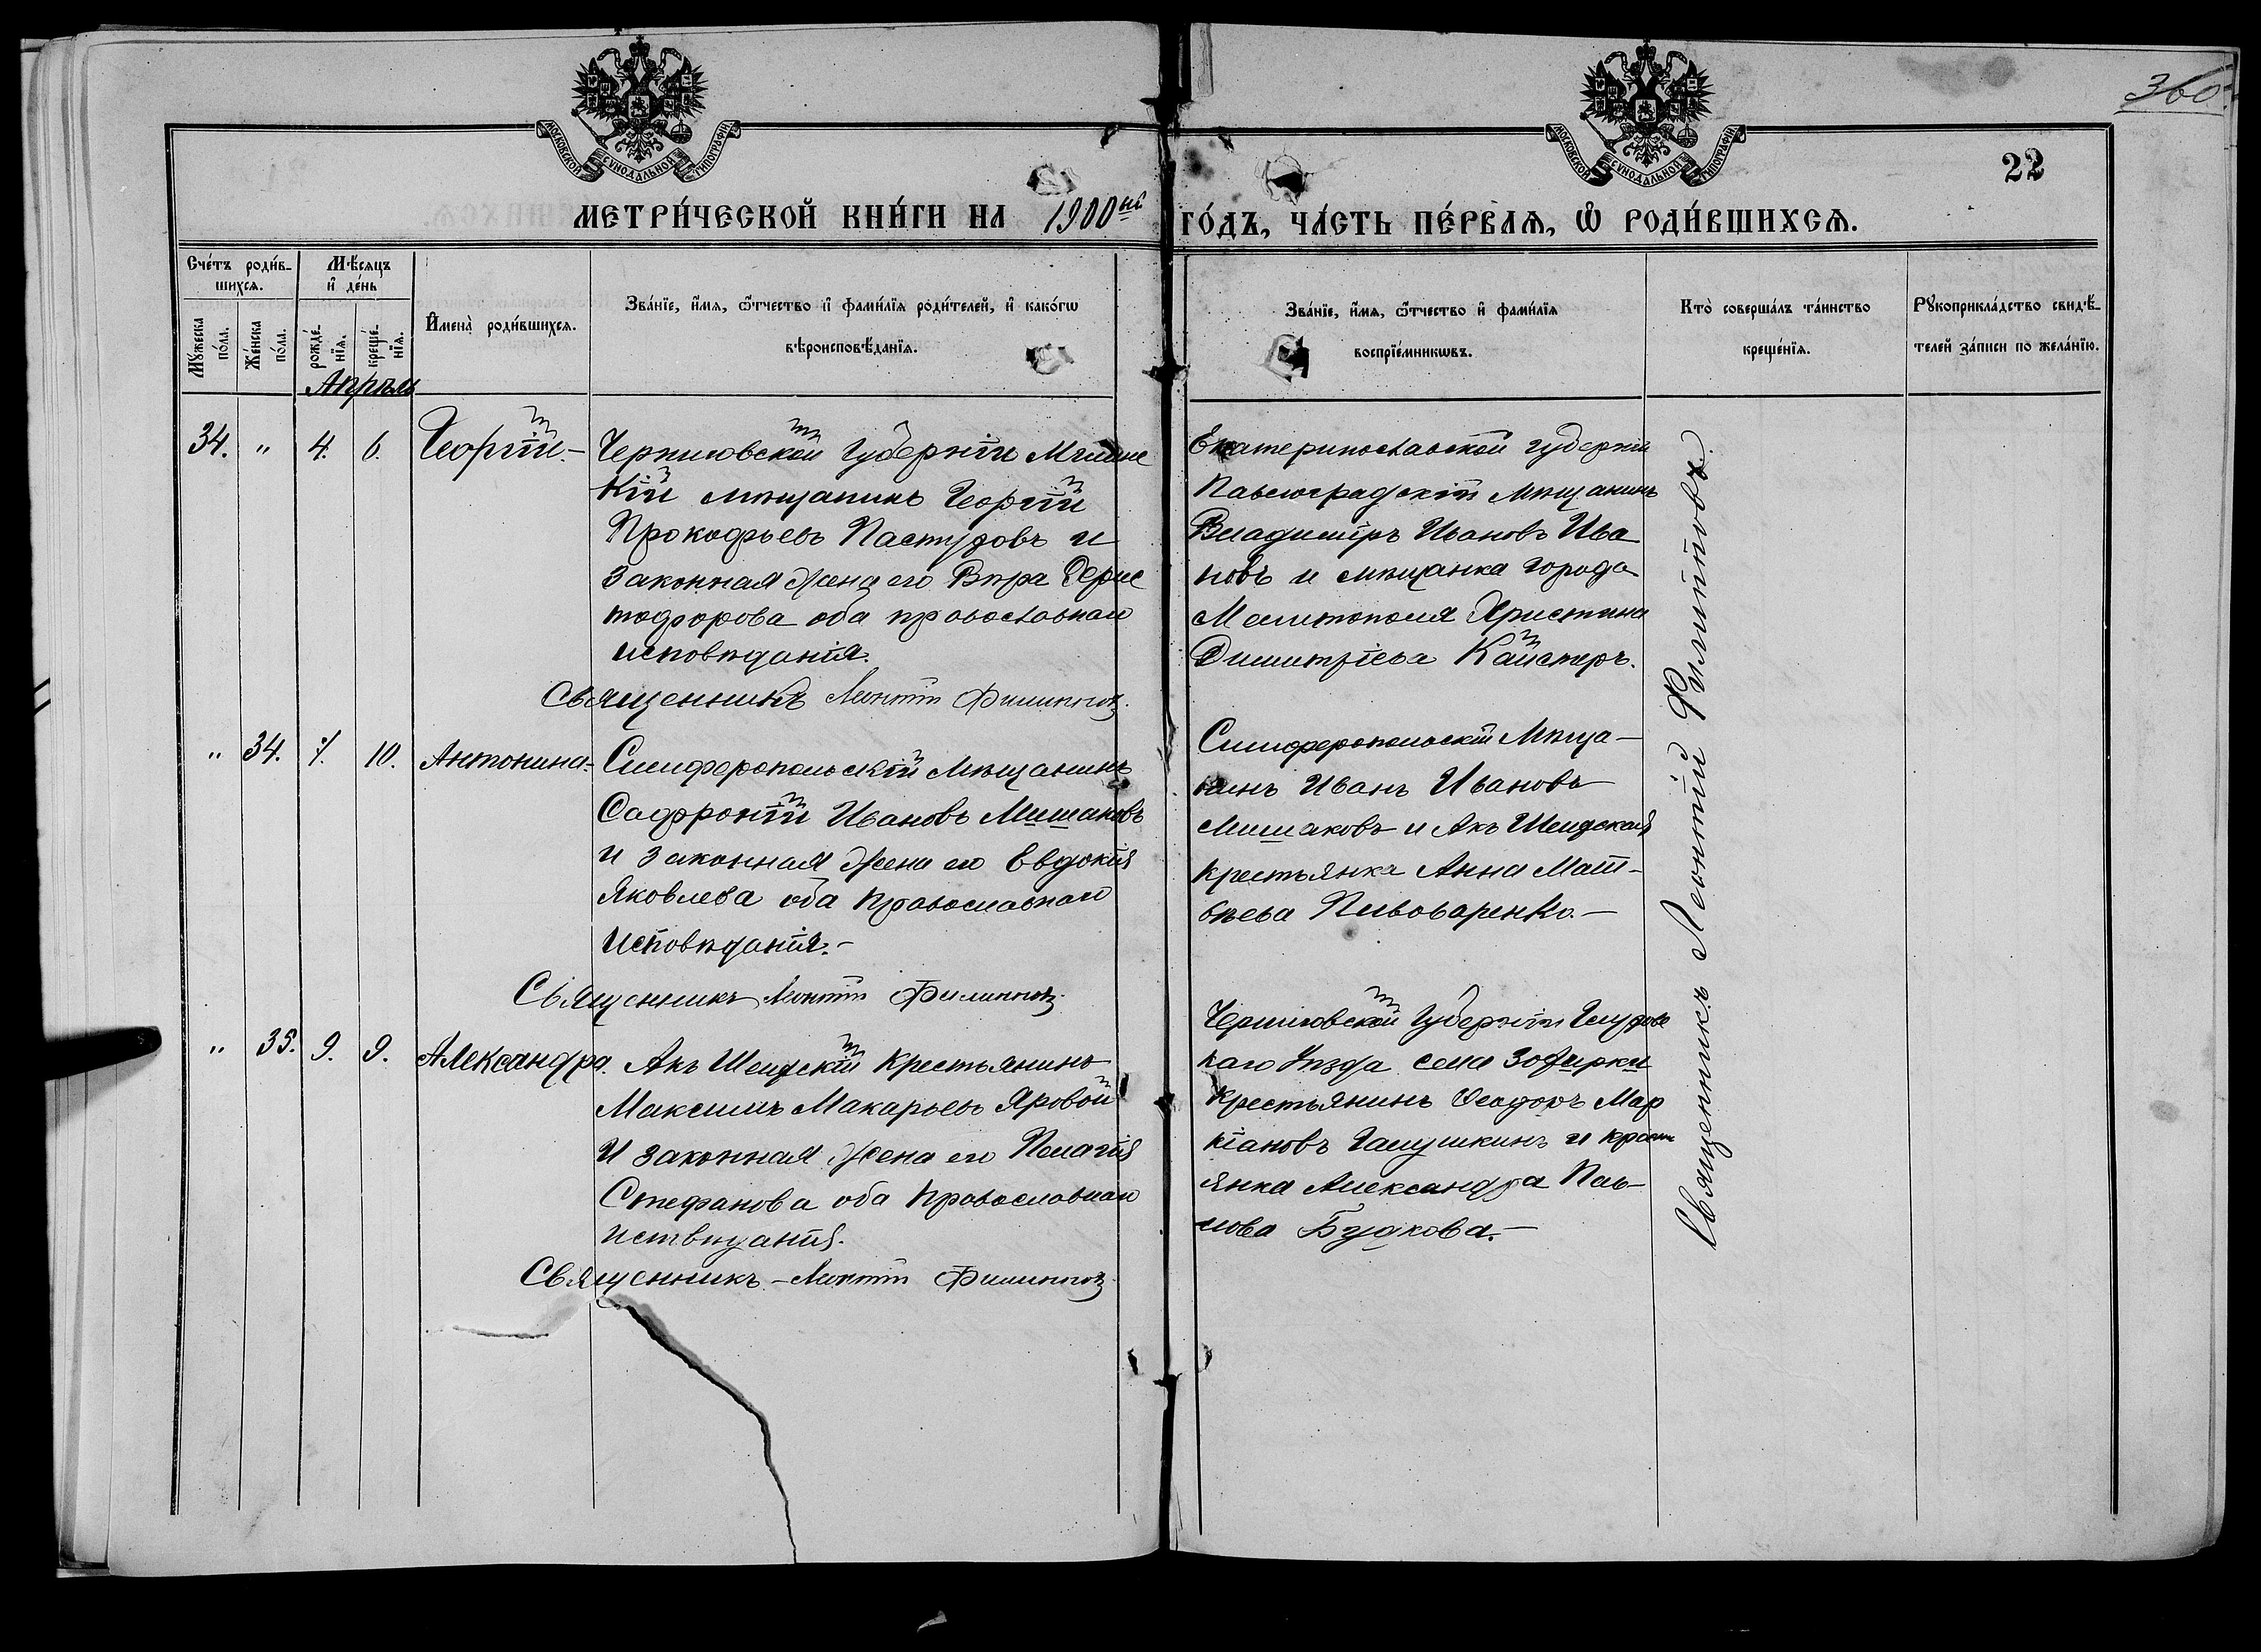 360.
МОСКОВСКОЙ СУНОДАЛЬНОЙ ТИПОГРАФІИ
МОСКОВСКОЙ СУНОДАЛЬНОЙ ТИПОГРАФІИ
22
МЕТРИ́ЧЕСКОЙ КНИ́ГИ НА 1900ый ГО́ДЪ, ЧА́СТЬ ПЕ́РВАЯ, Ѡ҆ РОДИ́ВШИХСѦ.
Сче́тъ роди́в-
шихсѧ.
Мѣ́сѧцъ
и҆ де́нь
Мꙋ́жеска
по́ла.
Же́нска
по́ла.
рожде́-
нїѧ.
креще́-
нїѧ.
И҆мена̀ роди́вшихсѧ.
Зва́нїе, и҆́мѧ, ѻ҆́тчество и҆ фами́лїѧ роди́телей, и҆ како́гѡ
вѣроисповѣ́данїѧ.
Зва́нїе, и҆́мѧ, ѻ҆́тчество и҆ фами́лїѧ
воспрїе́мникѡвъ.
Кто̀ соверша́лъ та́инство
креще́нїѧ.
Рꙋкоприкла́дство свидѣ́-
телей за́писи по жела́нїю.
Апрѣль
34. " 4. 6. Георгій.-
Черниговской губерніи Мглинс
кій мѣщанинъ Георгій
Прокофьевъ Пастуховъ и
законная жена его Вѣра
тофорова оба православнаго
исповѣданія.
Священникъ Леонтій Филипповъ.
Екатеринославской губерніи
Павлоградскій мѣщанинъ
Владиміръ Ивановъ Ива
новъ и мѣщанка города
Мелитополя Христина
Димитріева Кайстеръ.
" 34. 7. 10. Антонина.-
Симферопольскій мѣщанинъ
Софроній Ивановъ Мишаковъ
и законная жена его Евдокія
Яковлева оба православнаго
исповѣданія.-
Священникъ Леонтій Филипповъ.
Симферопольскій мѣща-
нинъ Иванъ Ивановъ
Мишаковъ и Акъ Шеихская
крестьянка Анна Мат-
ѳѣева Пивоваренко.-
" 35. 9. 9. Александра.
Акъ Шеихскій крестьянинъ
Максимъ Макарьевъ Яровой
и законная жена его Пелагія
Стефанова оба православнаго
исповѣданія.
Священникъ - Леонтій Филипповъ.
Черниговской губерніи Глухове
каго уѣзда села
крестьянинъ Ѳеодоръ Мар
кіановъ Галушкинъ и крест
янка Александра Пав-
лова Будкова.-
Священникъ Леонтій Филипповъ.